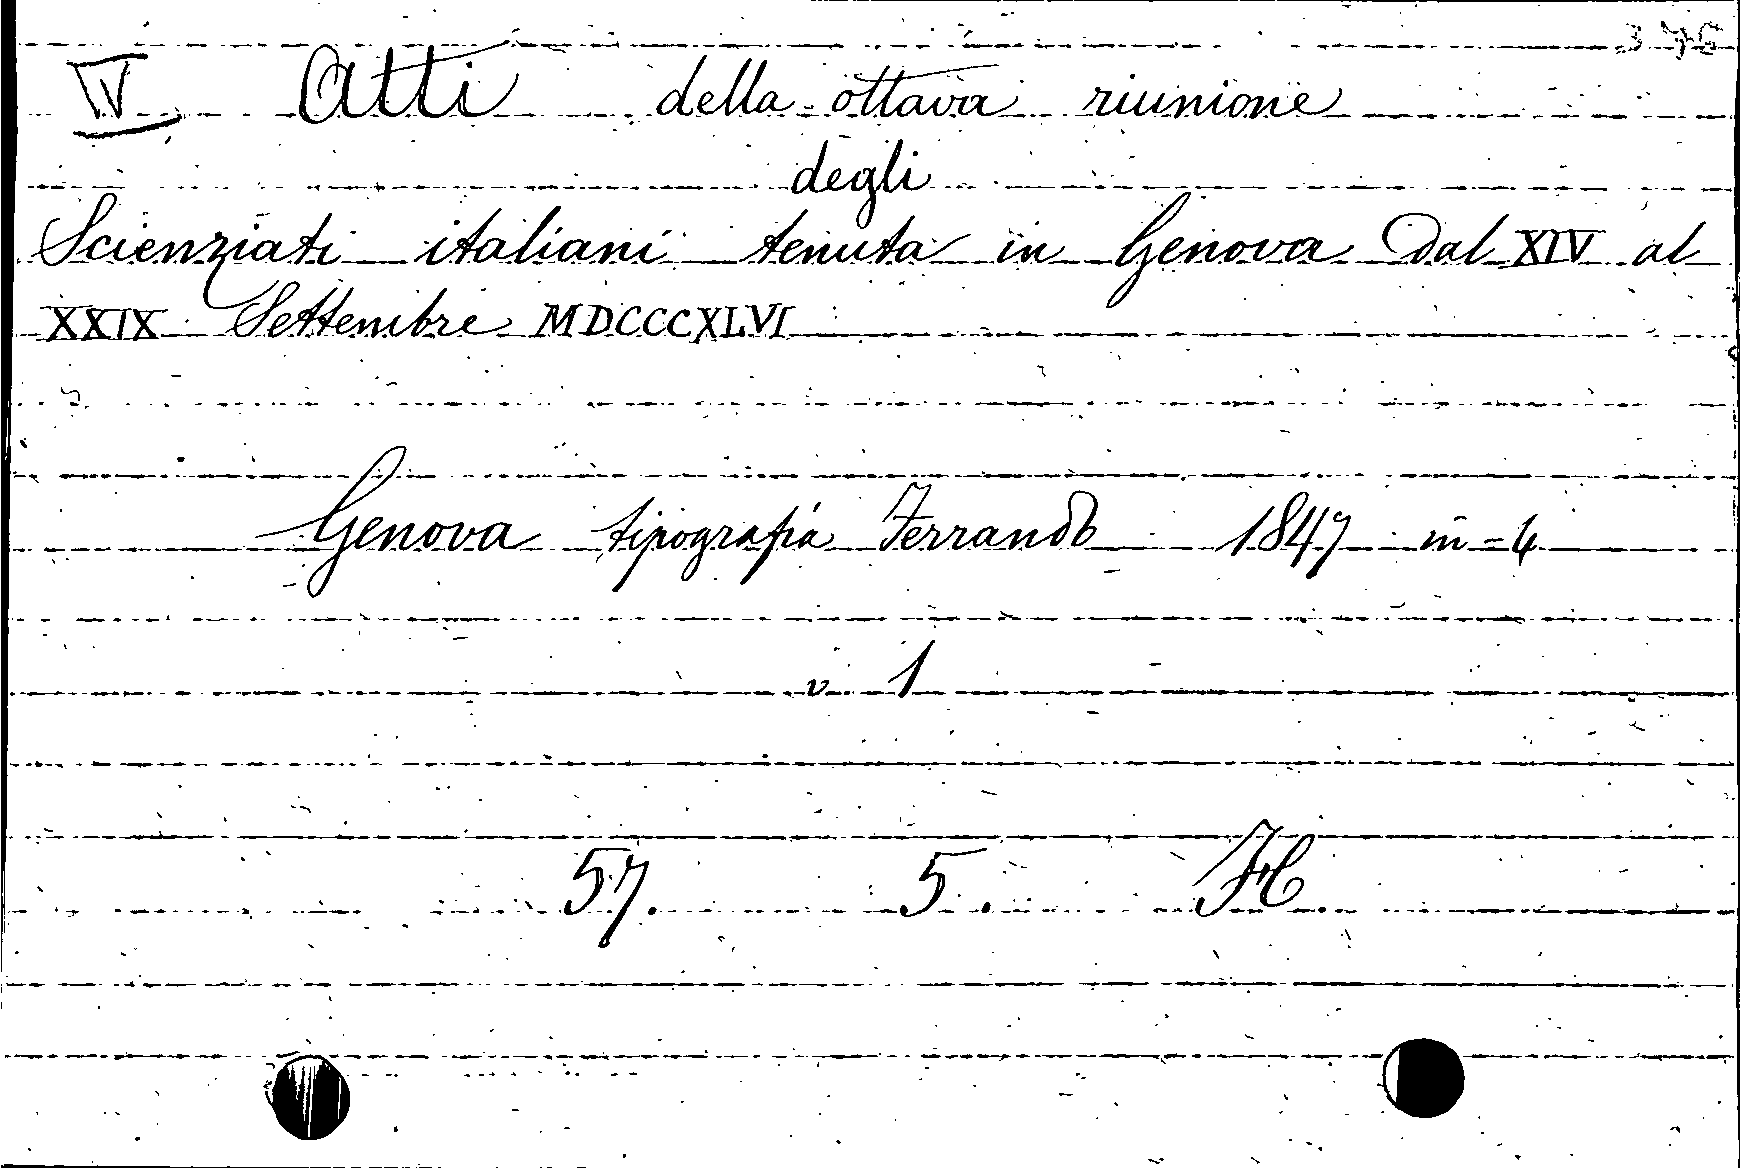 376
IV Atti della ottava riunione
degli
Scienziati italiani tenuta in Genova dal XIV al
XXIX Settembre MDCCCXLVI
Genova tipografia Ferrando 1847 in-4
v. 1
57. 5. H.